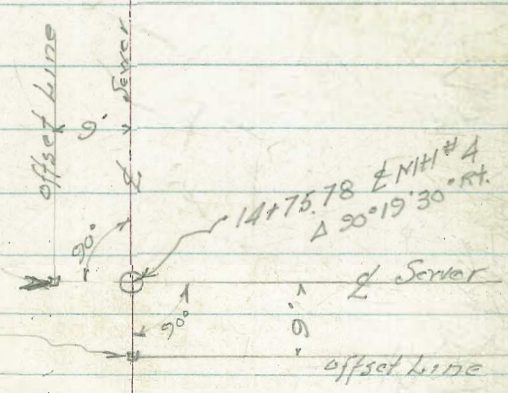 offset Line
9'
℄ Sewer
90°
14+75.78 ℄ MH #4
Δ 90°19'30" Rt.
℄ Sewer
90°
9'
offset Line